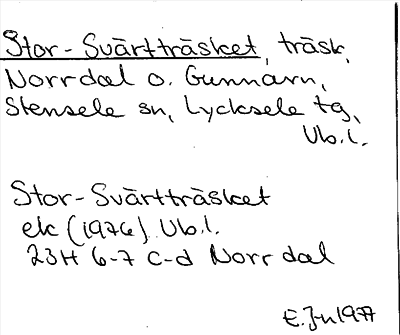 Stor-Svärtträsket, träsk,
Norrdal o. Gunnarn,
Stensele sn, Lycksele tg,
Vb.l.
Stor-Svärtträsket
ek (1976) Vb.l.
23H 6-7 c-d Norrdal
E.Jn 1977